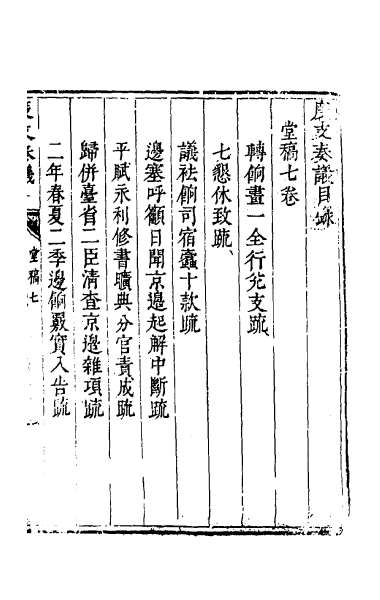 度支奏議目錄
堂稿七卷
轉餉畫一全行兌支疏
七懇休致疏
議袪餉司宿蠹十款疏
邊塞呼籲日聞京邊起解中斷疏
平賦永利修書曠典分官責成疏
歸併臺省二臣清查京邊雜項疏
二年春夏二季邊餉覈實入告疏
堂稿七